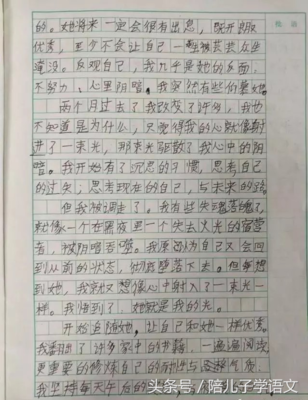 的。她将来一定会很有出息，既开朗
优秀，至少不会让自己一般被芸芸众生
淹没。反观自己，我几乎是她的反面，
不努力、心里阴暗。我突然有些仰慕她。
两个月过去了我改变了许多，我也
不知道是为什么，只觉得我的心就像射
进了一束光，那束光驱散了我心中的阴
暗。我开始有了沉思的习惯，思考自己
的过失；思考现在的自己，与未来的路。
但我被调走了。我有些失魂落魄了，
就像一个在黑夜里一个失去火光的宿营
者，被阴暗吞噬。我原以为自己又会回
到从前的状态，彻底堕落下去。但每想
到她，我就又想像心中射入了一束光一
样。我悟到了，她就是我的光。
开始追随她，让自己和她一样优秀。
我翻出了许多家中的书籍，一遍遍阅读
更重要的修炼自己的耐性与
我坚持每天午后的
头条号／陪儿子学语文